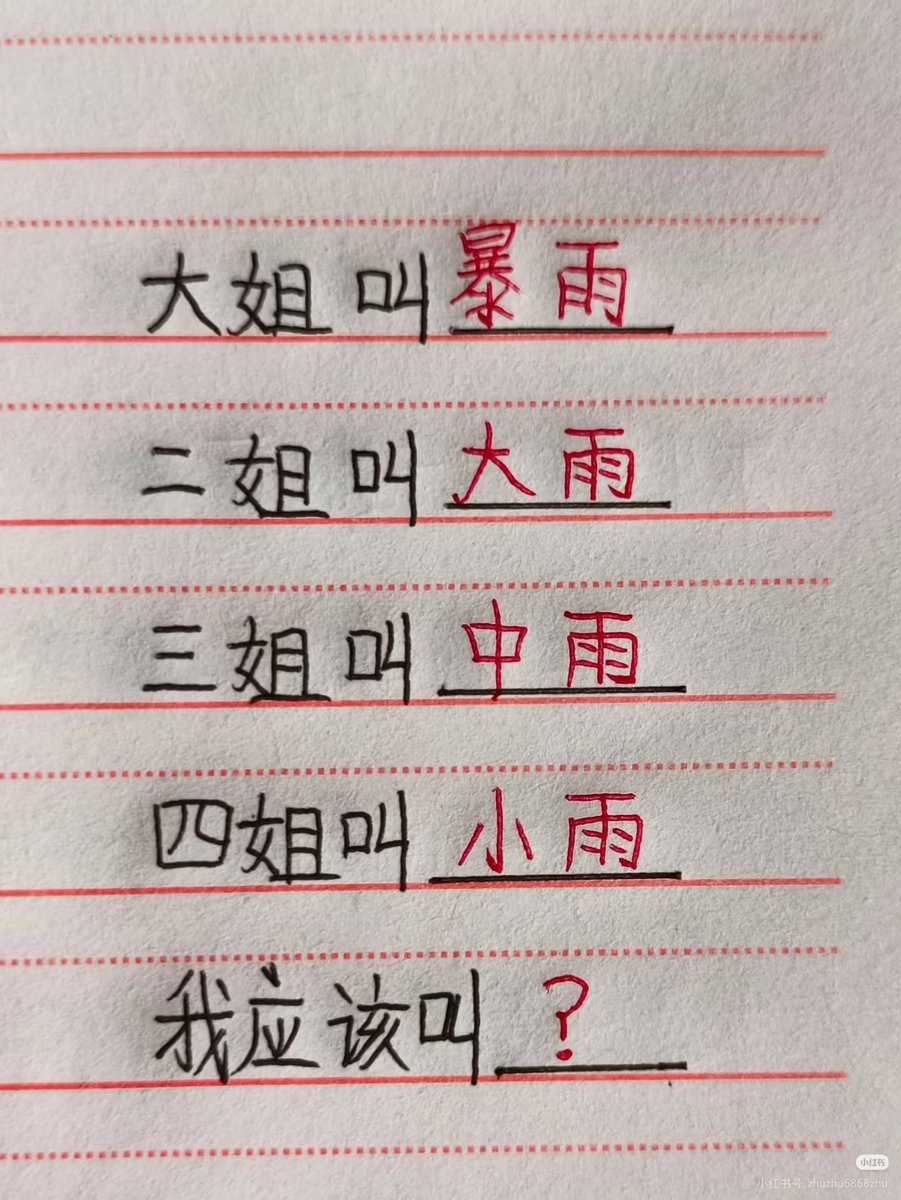 大姐叫暴雨
二姐叫大雨
三姐叫中雨
四姐叫小雨
我应该叫?
小红书
小红书号: zhuzhu6868zhu